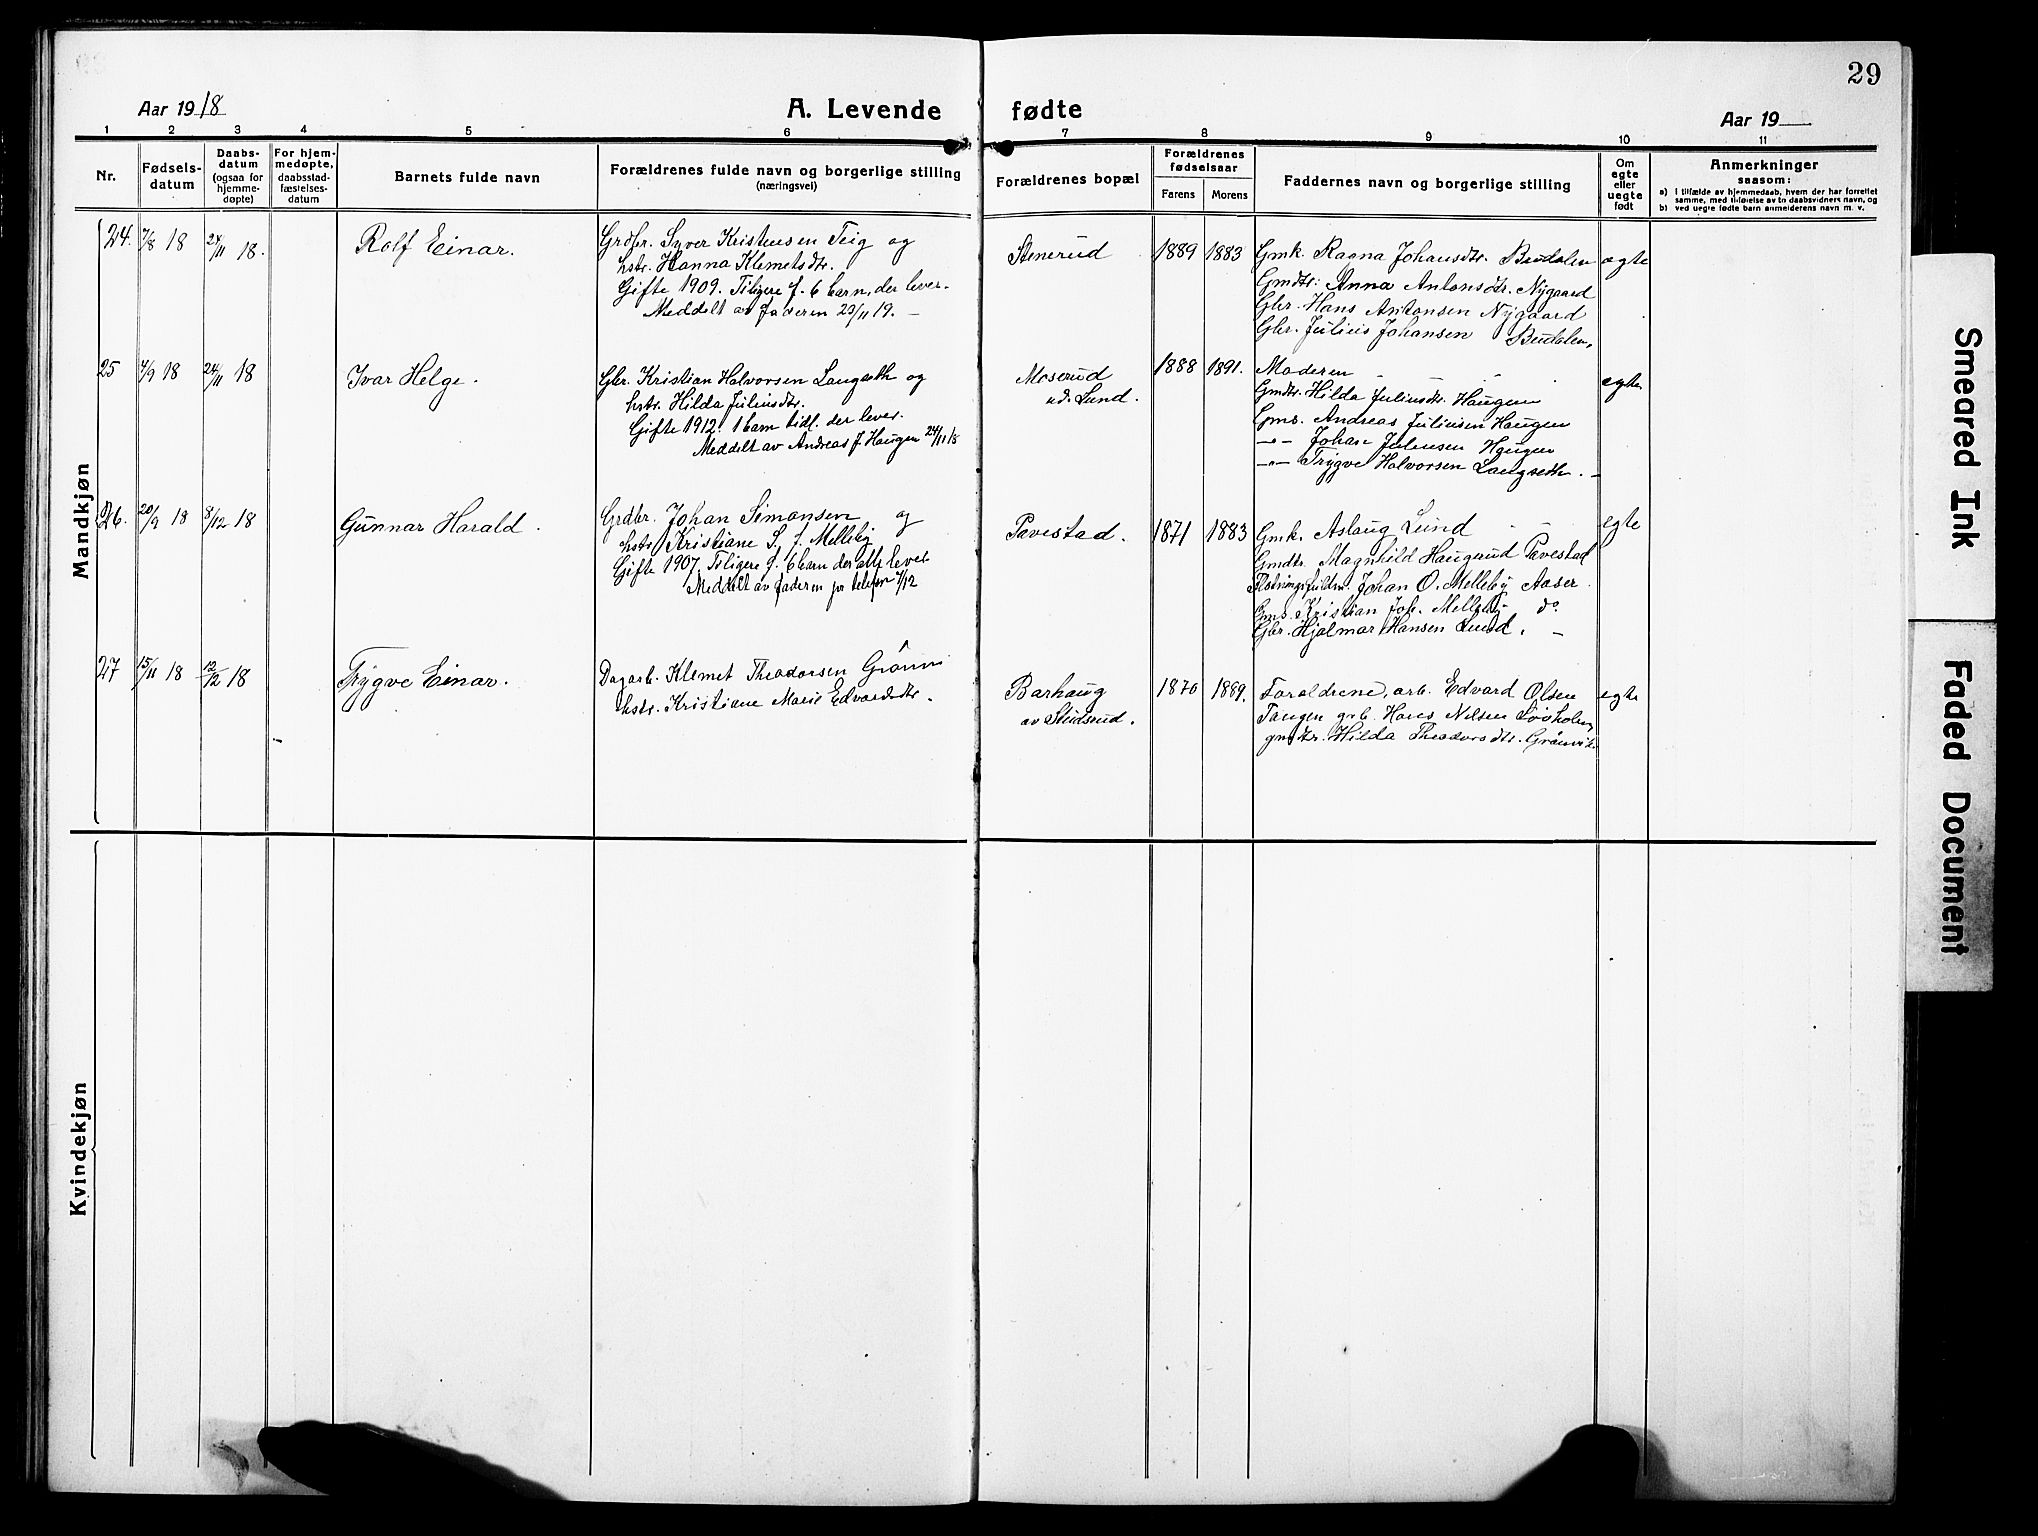 29
Aar 1918
A. Levende fødte
Aar 19
1 2 3 4 5 6 7 8 9 10 11
Nr.
Fødsels-
datum
Daabs-
datum
(ogsaa for
hjemme-
døpte)
For hjem-
medøpte,
daabsstad-
fæstelses-
datum
Barnets fulde navn
Forældrenes fulde navn og borgerlige stilling
(næringsvei)
Forældrenes bopæl
Forældrenes
fødselsaar
Farens Morens
Faddernes navn og borgerlige stilling
Om
egte
eller
uegte
født
Anmerkninger
saasom:
a) i tilfælde av hjemmedaab, hvem der har forrettet
samme, med tilføielse av to daabsvidners navn, og
b) ved uegte fødte barn anmelderens navn m. v.
Mandkjøn
24. 7/8 18 24/11 18.
Rolf Einar.
Grdbr. Syver Kristensen Teig og
hstr. Hanna Klemetsdtr.
Gifte 1909. Tiligere f. 6 barn, der lever.
Meddelt av faderen 23/11 19. –
Stenerud
1889 1883
Gmk. Ragna Johansdtr. Budalen
Gmdtr. Anna Antonsdtr. Nygaard
Gbr. Hans Antonsen Nygaard
Gbr. Julius Johansen Budalen,
egte
25 7/9 18 24/11 18
Ivar Helge.
Gbr. Kristian Halvorsen Langseth og
hstr. Hilda Juliusdtr.
Gifte 1912. 1 barn tidl. der lever.
Meddelt av Andreas J. Haugen 24/11 18
Moserud
u. Lund.
1888 1891.
Moderen
Gmdtr. Hilda Juliusdtr. Haugen
Gms. Andreas Juliusen Haugen
–"– Johan Juliusen Haugen
–"– Trygve Halvorsen Langseth. –
egte
26. 20/9 18 8/12 18
Gunnar Harald.
Grdbr. Johan Simonsen og
hstr. Kristiane S. f. Melleby
Gifte 1907. Tiligere f. 6 barn der alle lever
Meddelt av faderen pr telefon 7/12
Pavestad.
1871 1883
Gmk. Aslaug Lund "
Gmdtr. Magnhild Haugerud Pavestad
Johan O. Melleby Aaser.
Gms. Kristian Joh. Melleby do
Gbr. Hjalmar Hansen Lund. –
egte
27 15/11 18 12/12 18
Trygve Einar.
Dagarb. Klemet Theodorsen
hstr. Kristiane Marie Edvardsdtr.
Barhaug
av Studsrud.
1870 1889.
Foraldrene, arb. Edvard Olsen
Tangen grb. Hans Nilsen Løvholm,
gmdtr. Hilda Theodorsdtr. Grønvik
egte
Kvindekjøn
Smeared Ink
Faded Document